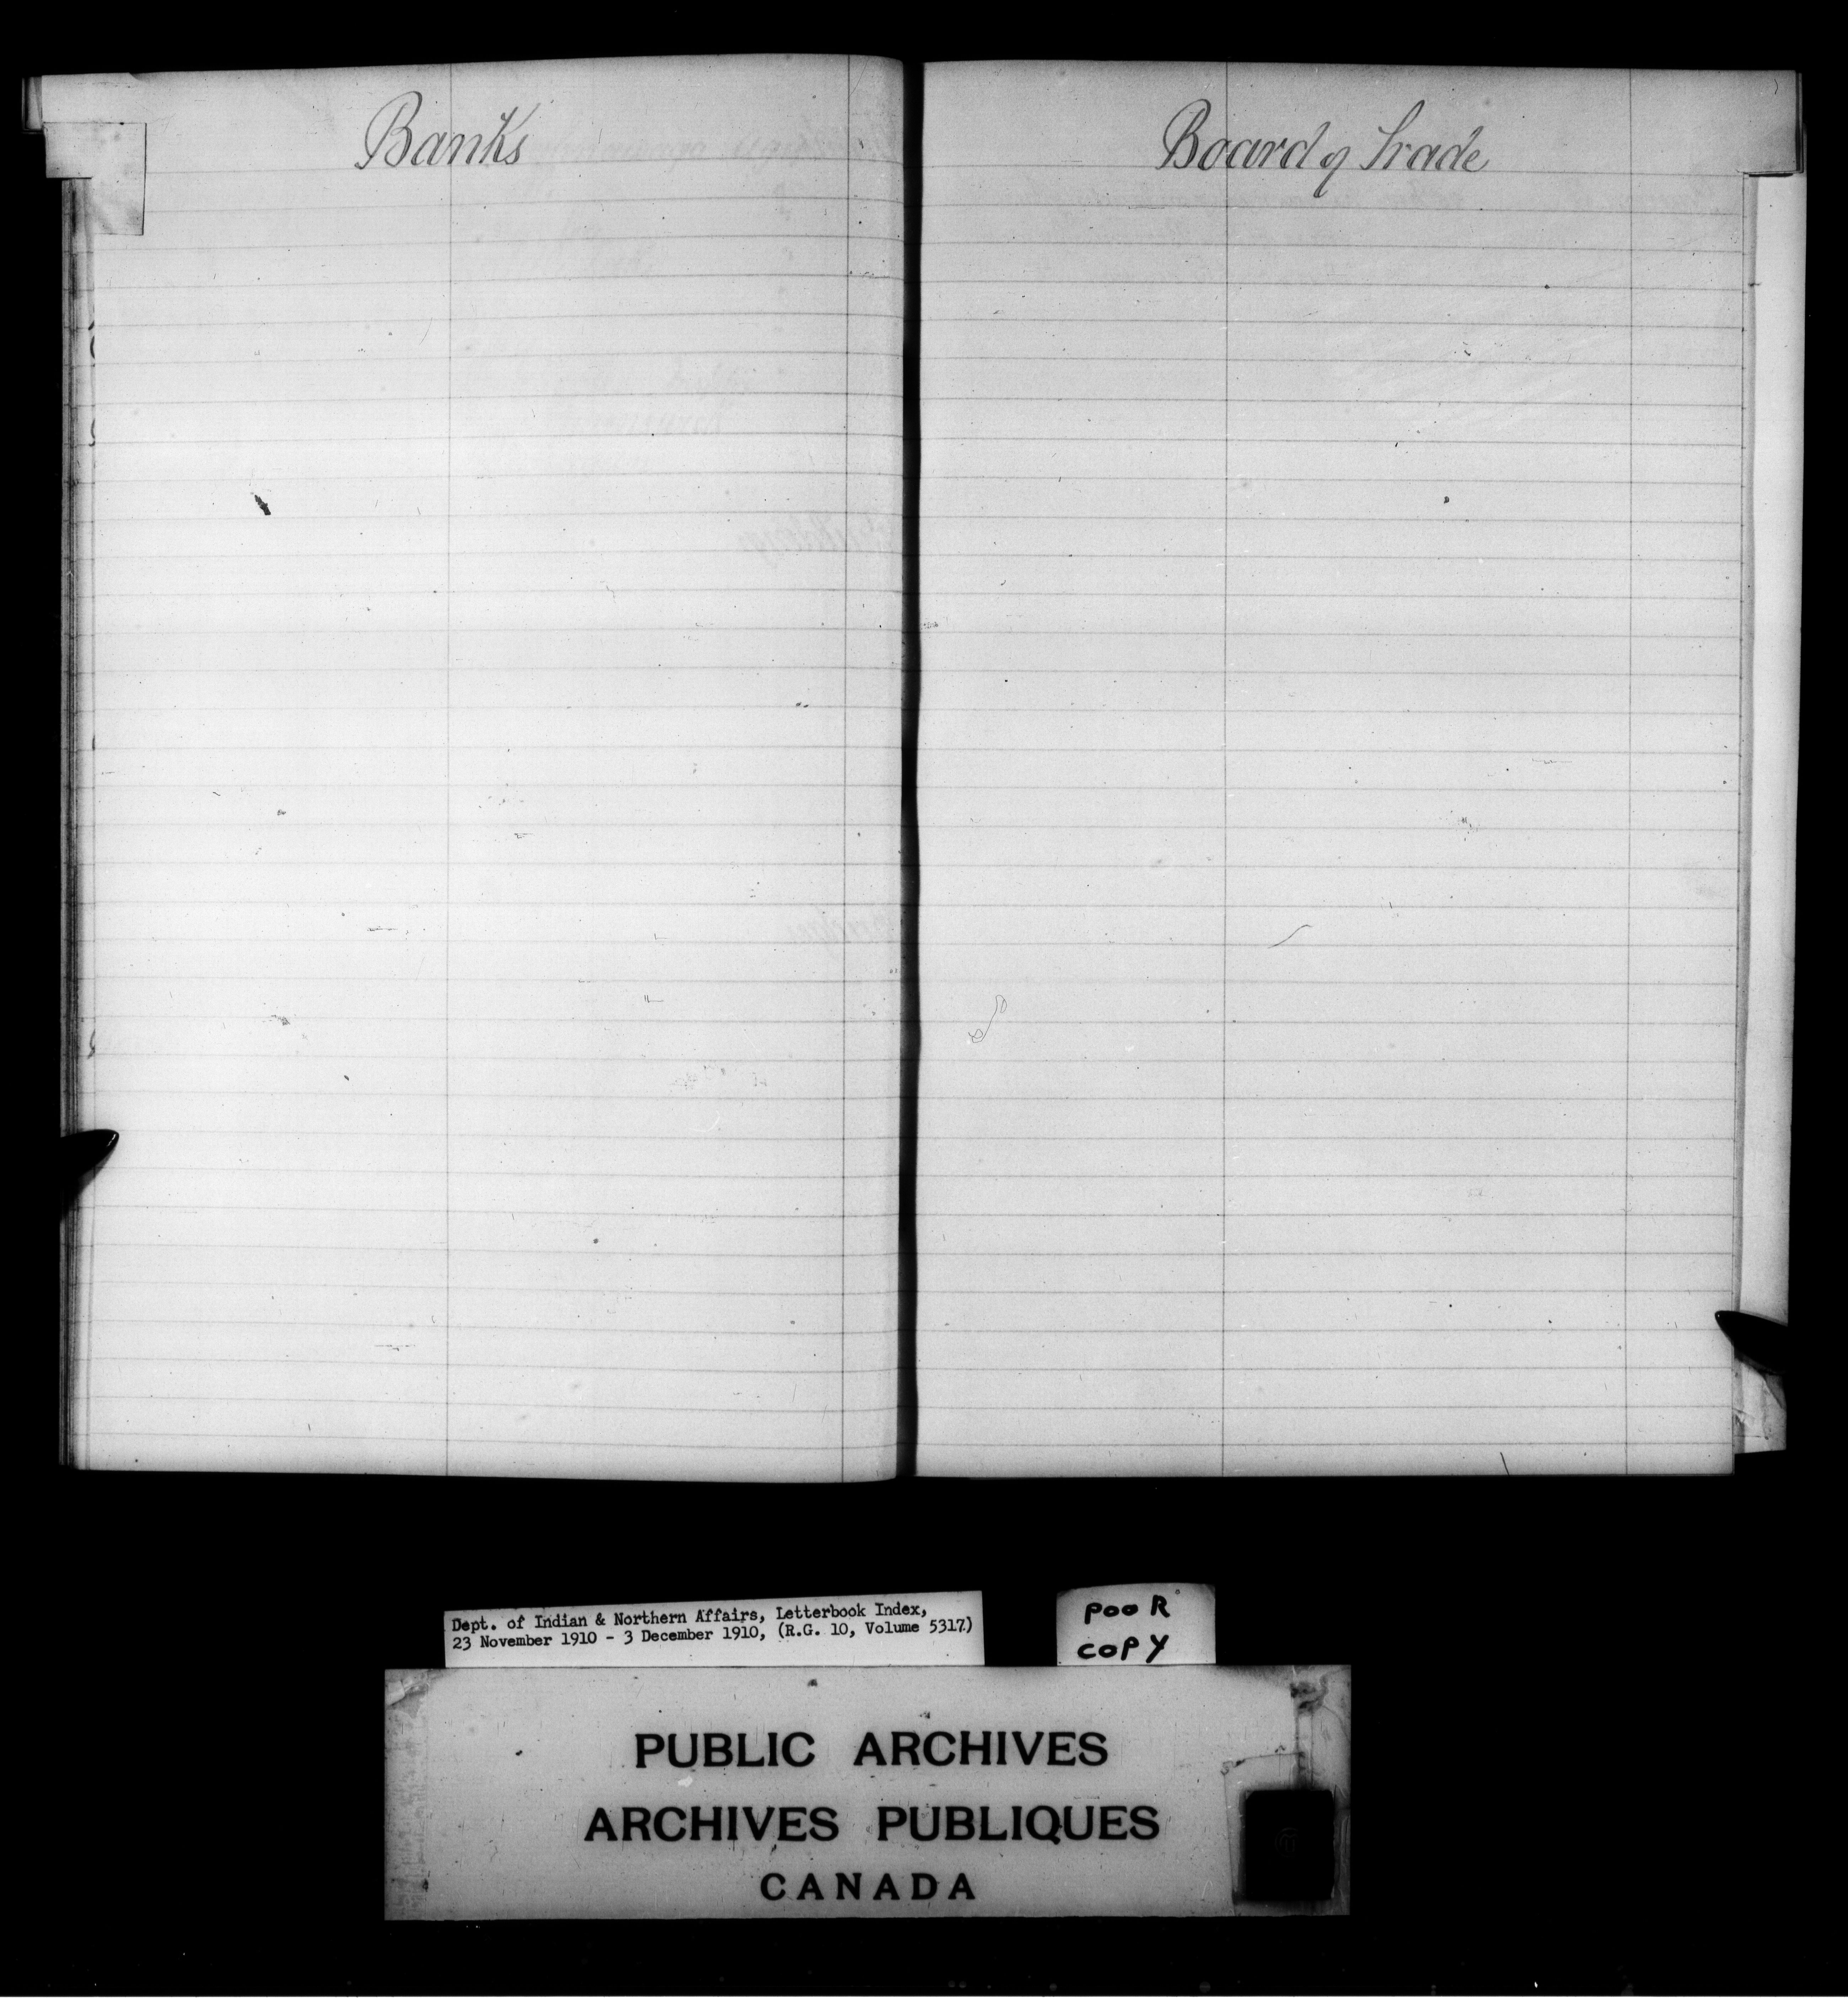 Banks
Board of Trade
Dept. of Indian & Northern Affairs, Letterbook Index,
23 November 1910 - 3 December 1910, (R.G. 10, Volume 5317)
POOR
COPY
PUBLIC ARCHIVES
ARCHIVES PUBLIQUES
CANADA